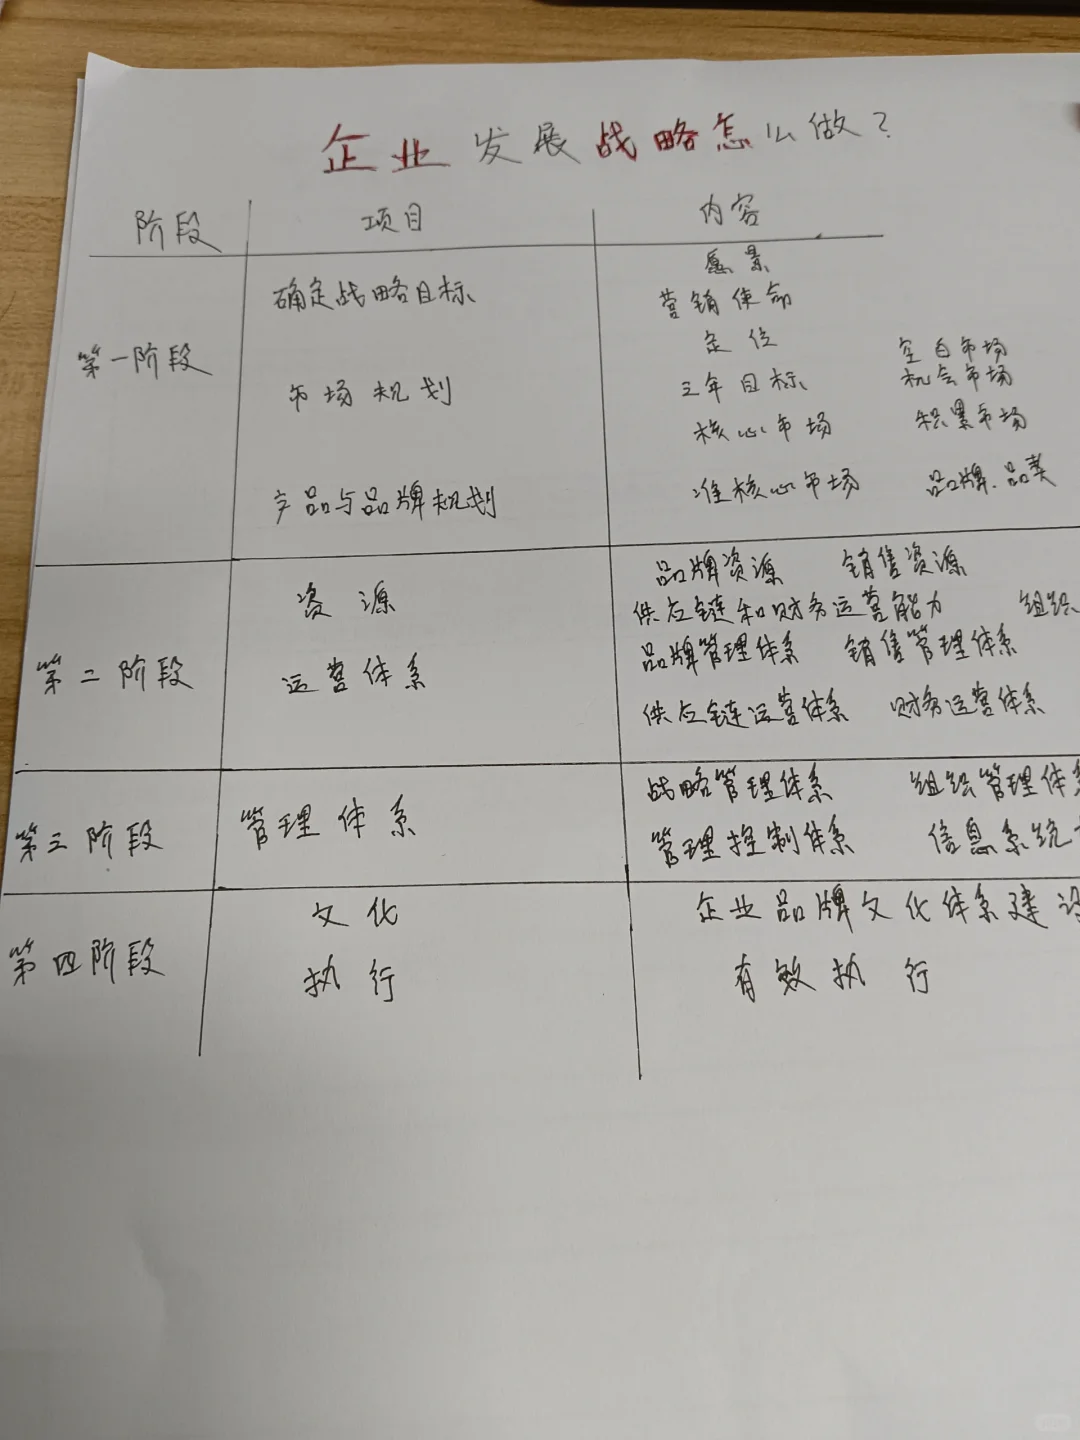 企业发展战略怎么做？
阶段 项目 内容
愿景
确定战略目标 营销使命
定位 空白市场
第一阶段 三年目标 机会市场
市场规划 核心市场 积累市场
产品与品牌规划 准核心市场 品牌、品类
品牌资源 销售资源
资源 供应链和财务运营能力 组织
第二阶段 运营体系 品牌管理体系 销售管理体系
供应链运营体系 财务运营体系
战略管理体系 组织管理体系
第三阶段 管理体系 管理控制体系 信息系统
文化 企业品牌文化体系建设
第四阶段 执行 有效执行